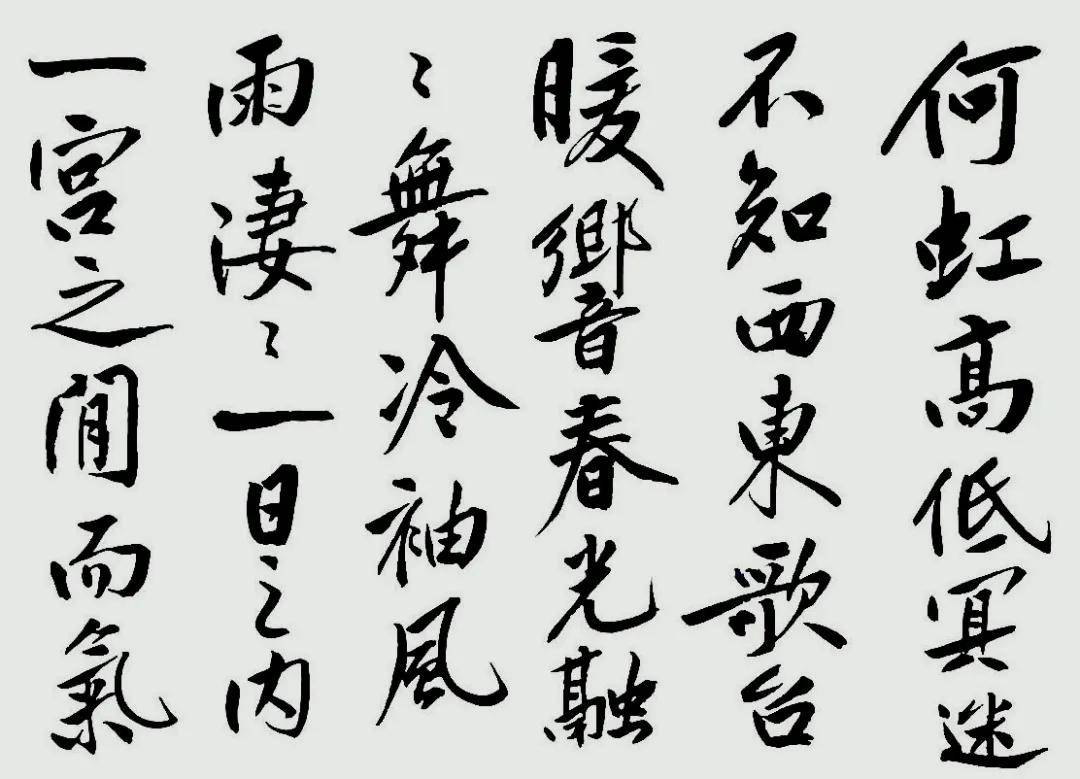 何虹高低冥迷
不知西東歌台
暖響春光融
〻舞冷袖風
雨淒〻一日之内
一宮之間而氣